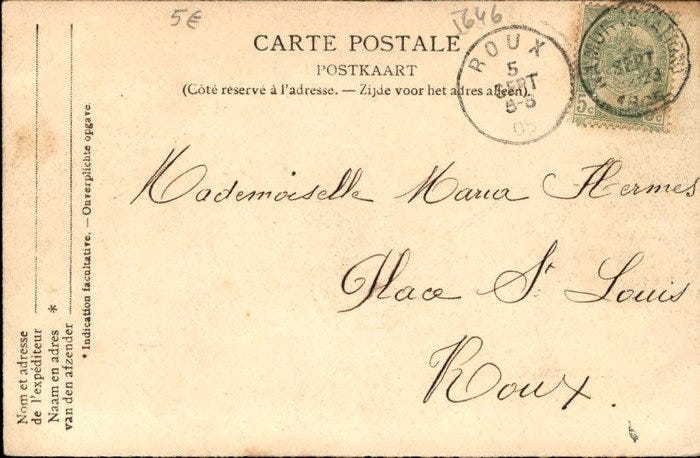 5€
1646
CARTE POSTALE
POSTKAART
(Côté réservé à l'adresse. — Zijde voor het adres alleen).
ROUX
5
SEPT
5-6
05
SEPT
5c
Mademoiselle Maria Hermes
Place St Louis
Roux.
Nom et adresse
de l'expéditeur
Naam en adres *
van den afzender
* Indication facultative. — Onverplichte opgave.